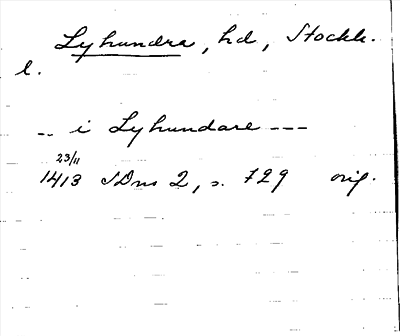 Lyhundra, hd, Stockh.
l.
-- i Lyhundare ---
23/11
1413 SDns 2, s. 729 orig.